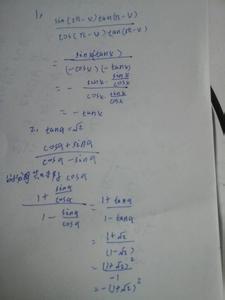 1.
sin(2π-α)tan(π-α)
cos(π-α)tan(3π-α)
= sinα(tanα)
(-cosα)(-tanα)
= - sinα · sinα/cosα
cosα · sinα/cosα
= -tanα
2. tanα=√2
cosα+sinα
cosα-sinα
cosα
1 + sinα/cosα = 1+tanα
1 - sinα/cosα 1-tanα
= (1+√2)
(1-√2)
= (1+√2)²
-1
= -(1+√2)²